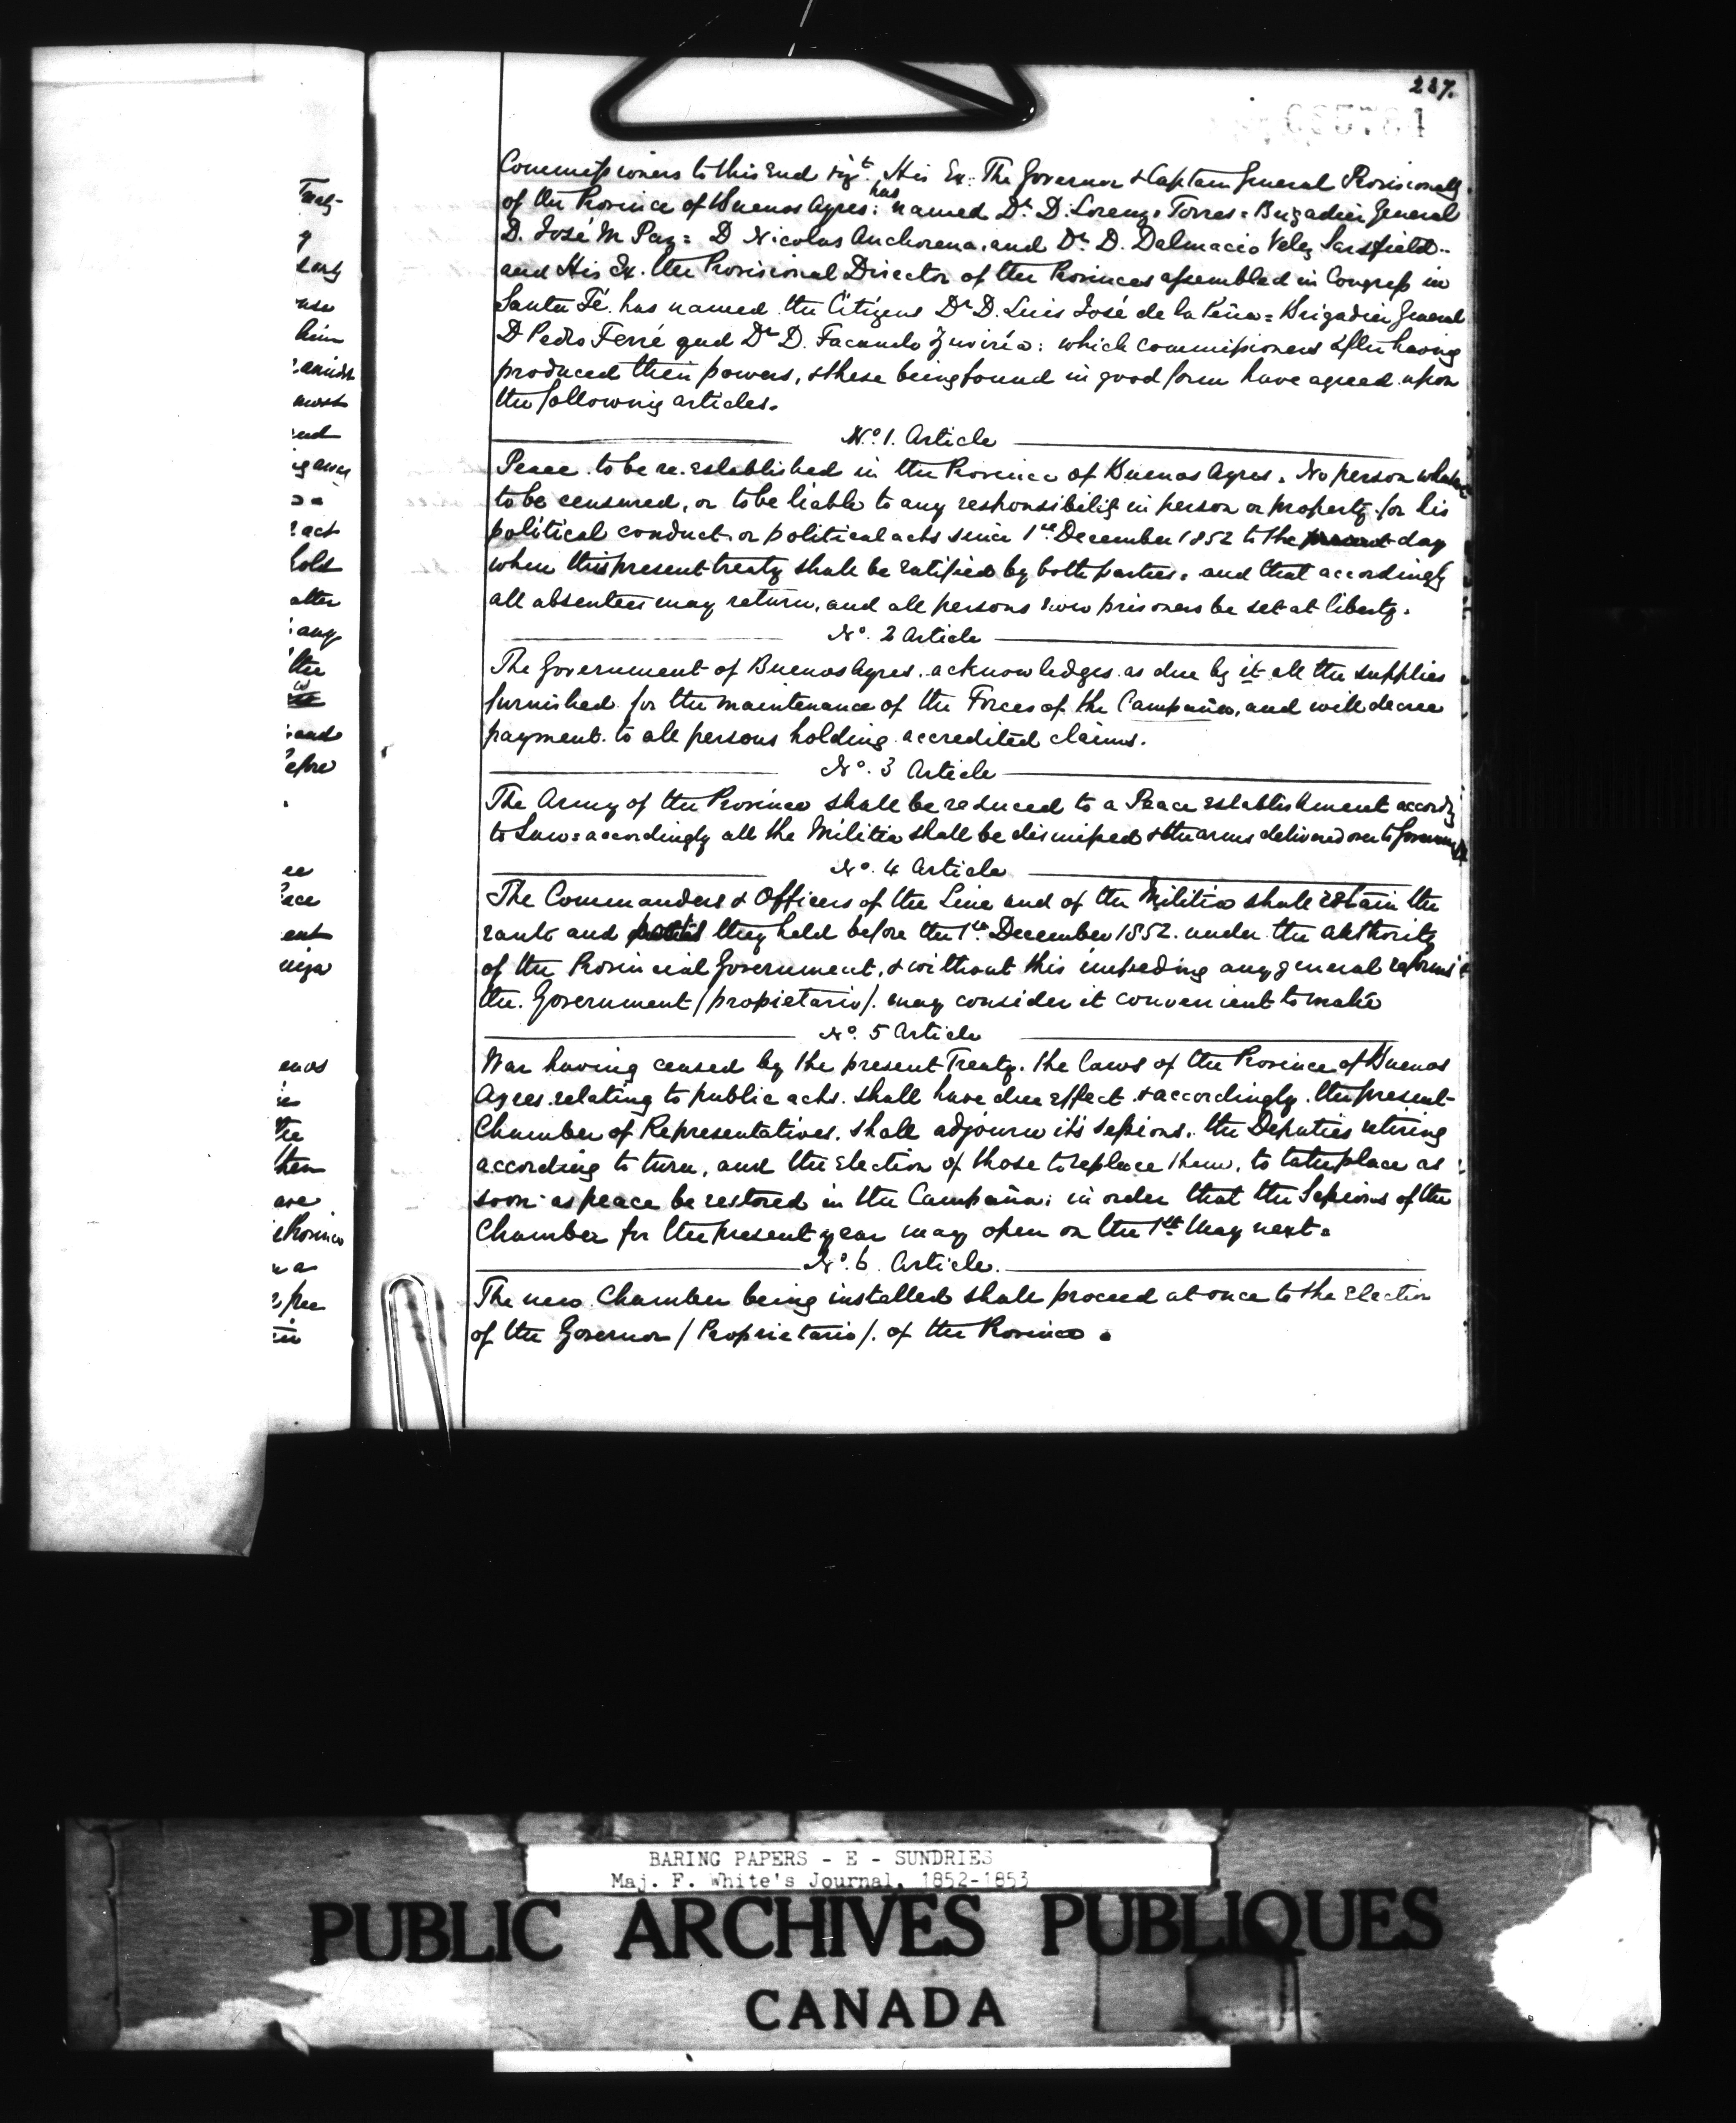 237.
Commissioners to this End vizt. His Ex: The Governor & Captain General Provisionally
of the Province of Buenos Ayres: has named Dr. D. Lorenzo Torres = Brigadier General
D. José M Paz = D Nicolas Anchorena, and Dr. D. Dalmacio Velez Sarsfield ..
and His Ex. the Provisional Director of the Provinces assembled in Congress in
Santa Fé. has named the Citizens Dr D. Luis José de la Peña = Brigadier General
D Pedro Ferré and Dr D. Facundo Zuviría: which commissioners after having
produced their powers, & these being found in good form have agreed upon
the following articles.
No. 1. Article
Peace to be re.established in the Province of Buenos Ayres. No person
to be censured, or to be liable to any responsibility in person or property for his
political conduct or political acts since 1st December 1852 to the present day
when this present treaty shall be ratified by both parties. and that accordingly
all absentees may return, and all persons now prisoners be set at liberty.
No. 2 Article
The Government of Buenos Ayres. acknowledges as due by it all the supplies
furnished for the maintenance of the Forces of the Campaña, and will decree
payment to all persons holding accredited claims.
No. 3 Article
The Army of the Province shall be reduced to a Peace establishment accordg
to Law: accordingly all the Militia shall be dismissed & the arms delivered over to Governmt
No. 4 Article
The Commanders & Officers of the Line and of the Militia shall retain the
rank and they held before the 1st December 1852. under the authority
of the Provincial Government, & without this impeding any general reforms
the Government / propietario /. may consider it convenient to make
No. 5 Article
War having ceased by the present Treaty. the laws of the Province of Buenos
Ayres relating to public acts. shall have due effect & accordingly the present
Chamber of Representatives. shall adjourn its sessions. the Deputies retiring
according to turn, and the Election of those to replace them, to take place as
soon as peace be restored in the Campaña: in order that the Sessions of the
Chamber for the present year may open on the 1st May next.
No. 6. Article.
The new Chamber being installed shall proceed at once to the election
of the Governor / Proprietario /. of the Province.
BARING PAPERS - E - SUNDRIES
Maj. F. White's Journal, 1852-1853
PUBLIC ARCHIVES PUBLIQUES
CANADA